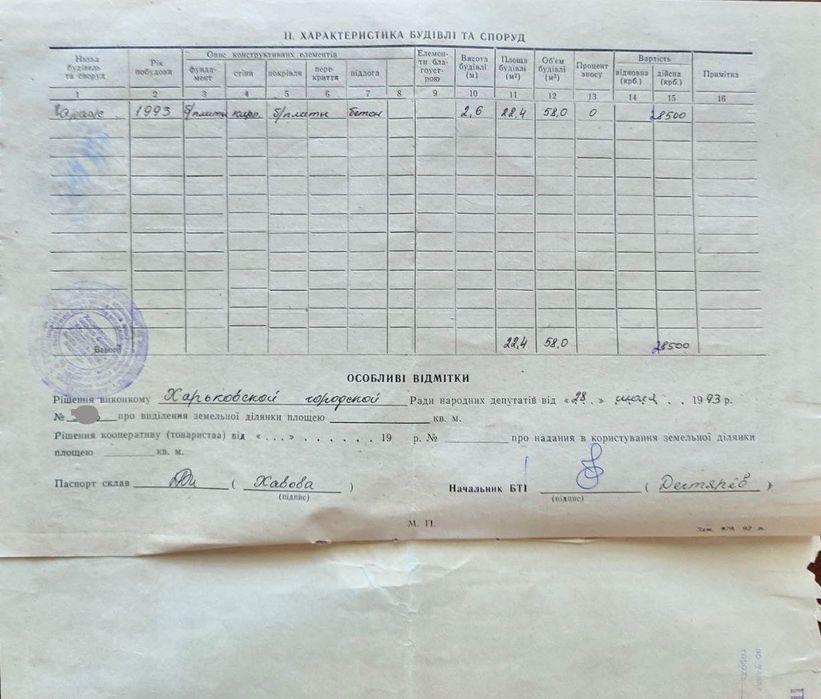 II. ХАРАКТЕРИСТИКА БУДІВЛІ ТА СПОРУД
Назва будівель та споруд
Рік побудови
Опис конструктивних елементів
фундамент
стіни
покрівля
перекриття
підлога
Елементи благоустрою
Висота будівлі (м)
Площа будівлі (м²)
Об'єм будівлі (м³)
Процент зносу
Вартість
відновна (крб.)
дійсна (крб.)
Примітка
1 2 3 4 5 6 7 8 9 10 11 12 13 14 15 16
Гараж 1993 б/плиты кирп. б/плиты бетон 2,6 22,4 58,0 0 28500
Всього 22,4 58,0 28500
ОСОБЛИВІ ВІДМІТКИ
Рішення виконкому Харьковской городской Ради народних депутатів від «28.» 1993 р.
№ про виділення земельної ділянки площею кв. м.
Рішення кооперативу (товариства) від «...» . . . . . . 19 р. № про надання в користування земельної ділянки
площею кв. м.
Паспорт склав ( Хавова )
(підпис)
Начальник БТІ ( Дегтярёв )
(підпис)
М. П.